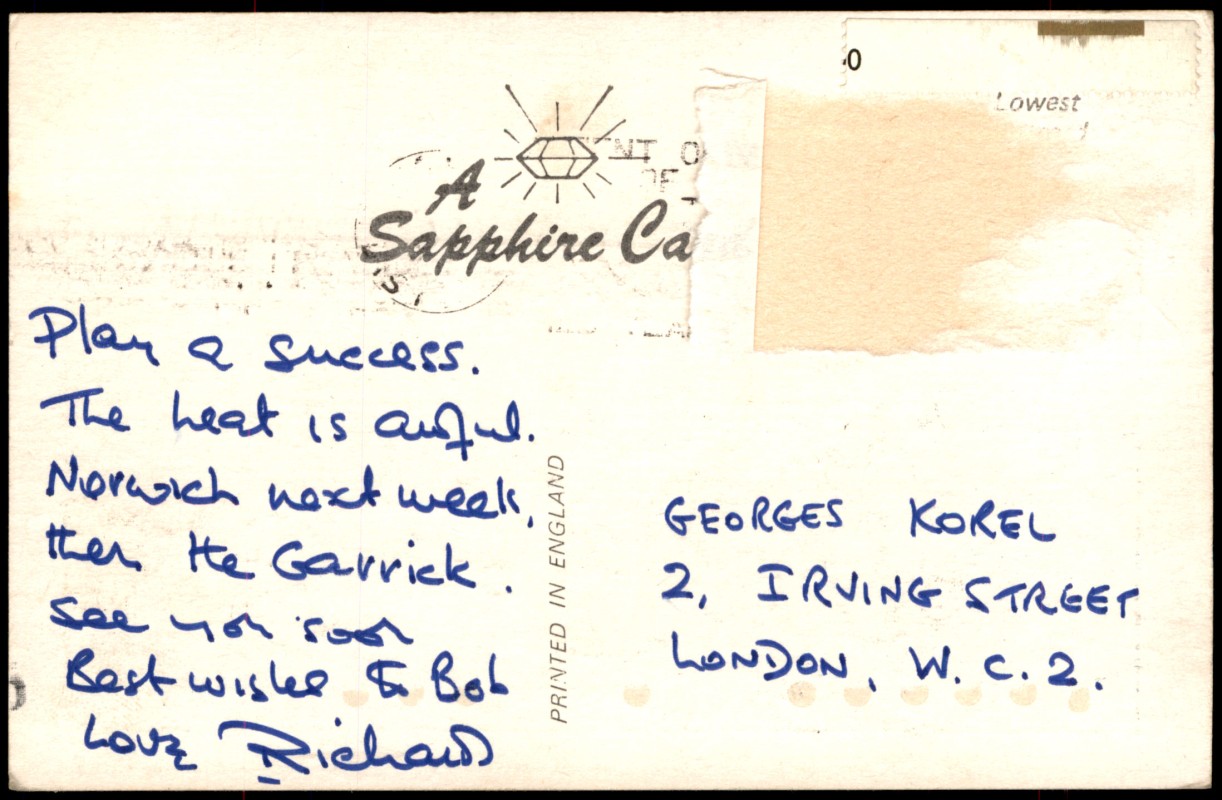 0
Lowest
A
Sapphire Ca
Play a success.
The heat is awful.
Norwich next week,
then the Garrick.
See you soon
Best wishes to Bob
Love Richard
PRINTED IN ENGLAND
GEORGES KOREL
2, IRVING STREET
LONDON, W.C.2.